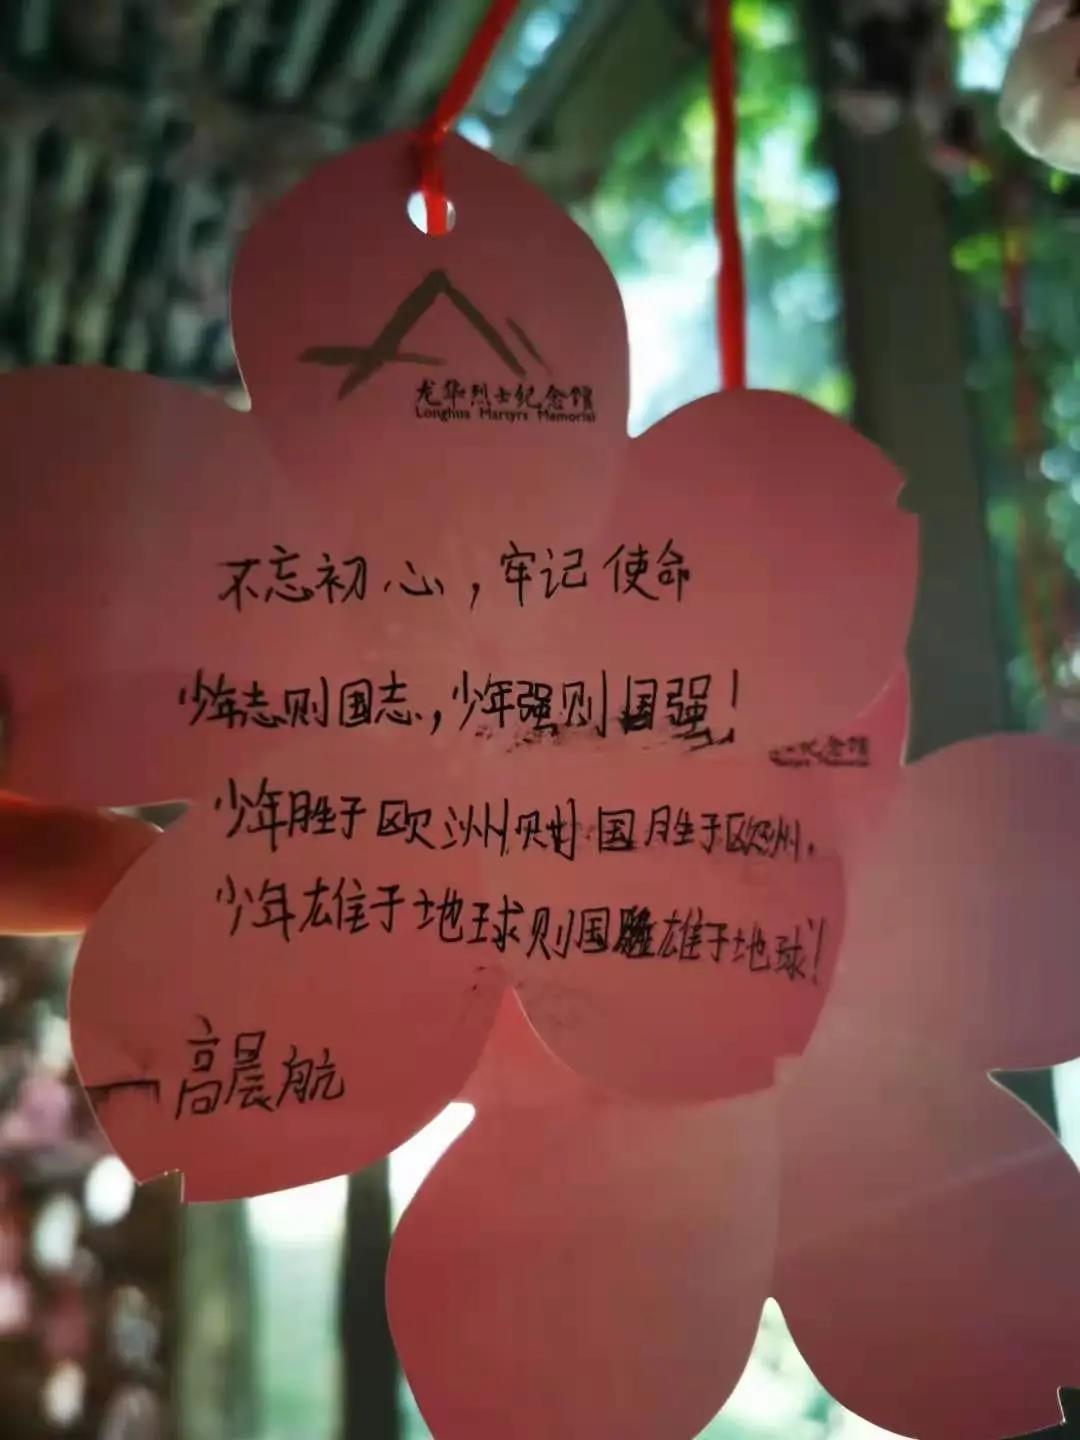 龙华烈士纪念馆
Longhua Martyrs Memorial
不忘初心，牢记使命
少年志则国志，少年强则国强！
纪念馆
Martyrs Memorial
少年胜于欧洲则国胜于欧洲，
少年雄于地球则国雄于地球！
—高晨航